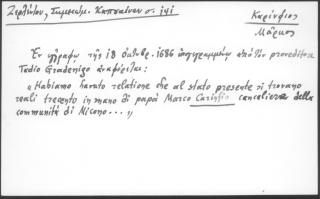 Ζερλέντου, Σημειώμ. Καππαίναν σ. 141
Καρίνφιος
Μάρκος
Εν εγγράφῳ τῆς 18 Οκτωβρ. 1686 υπογραμμένῃ από τον proveditore
Tadio Gradenigo αναφέρεται:
« Habiamo havuto relatione che al stato presente si trovano
reali trecento in mano di papà Marco Carinfio canceliere della
communità di Nicono...,,